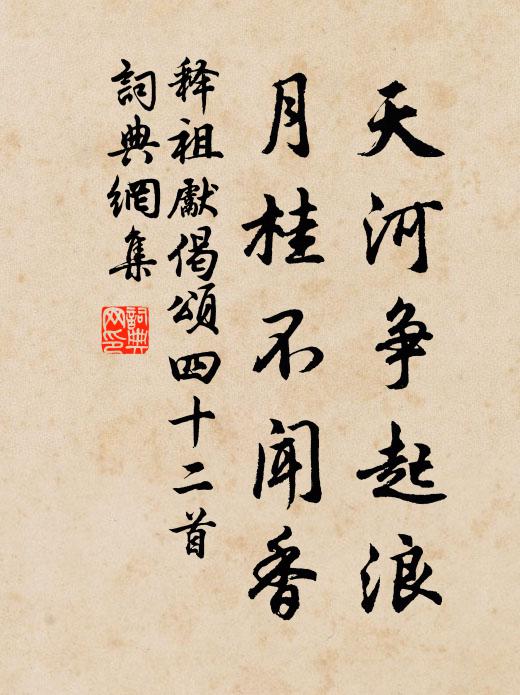 天河争起浪
月桂不闻香
释祖獻偈頌四十二首
詞典網集
詞典网印